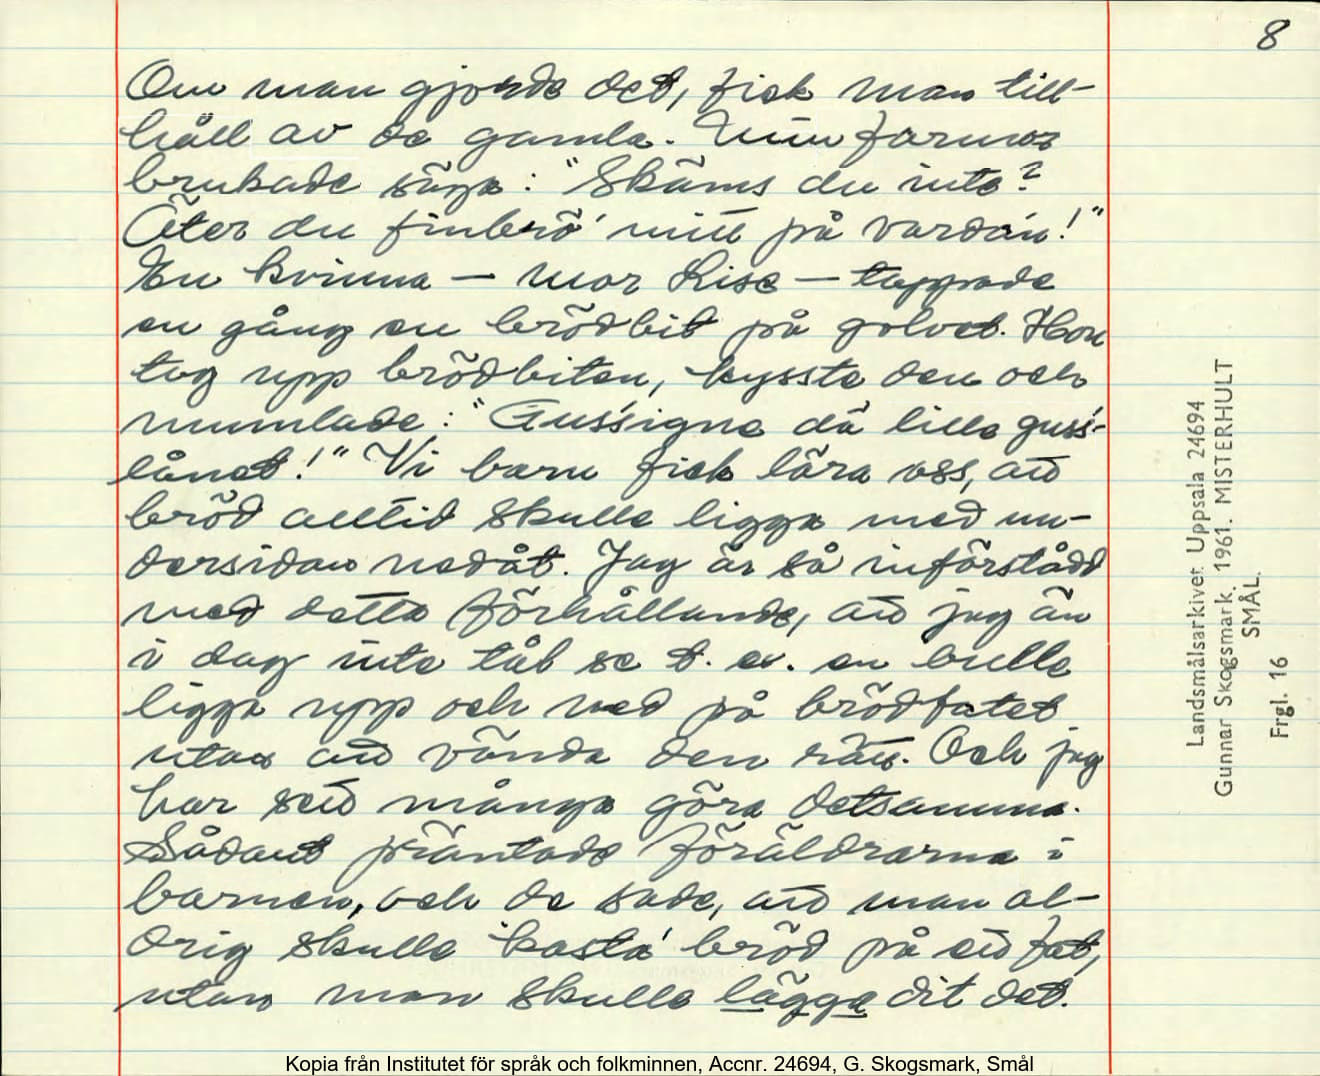 8
Om man gjorde det, fick man till-
håll av de gamla. Min farmor
brukade säga: "Skäms du inte?
Äter du finbrö' mitt på vardan!"
En kvinna – mor Lise – tappade
en gång en brödbit på golvet. Hon
tog upp brödbiten, kysste den och
mumlade: "Gus'signe dä lille gus's-
lånet!" Vi barn fick lära oss, att
bröd alltid skulle ligga med un-
dersidan nedåt. Jag är så införstådd
med detta förhållande, att jag än
i dag inte tål se t. ex. en bulle
ligga upp och ned på brödfatet
utan att vända den rätt. Och jag
har sett många göra detsamma.
Sådant präntade föräldrarna i
barnen, och de sade, att man al-
drig skulle 'kasta' bröd på ett fat,
utan man skulle lägga dit det.
Landsmålsarkivet Uppsala 24694
Gunnar Skogsmark. 1961. MISTERHULT
SMÅL.
Frgl. 16
Kopia från Institutet för språk och folkminnen, Accnr. 24694, G. Skogsmark, Smål